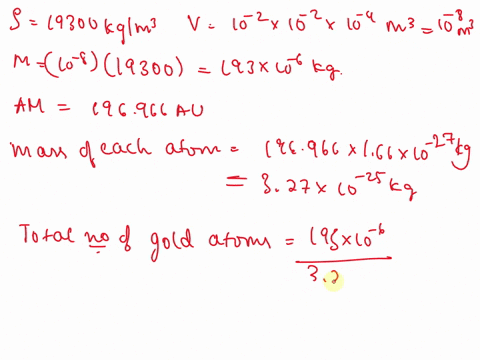 ρ = 19300 kg/m³ V = 10⁻² × 10⁻² × 10⁻⁴ m³ = 10⁻⁸ m³
M = (10⁻⁸) (19300) = 193 × 10⁻⁶ kg.
AM = 196.966 AU
mass of each atom = 196.966 × 1.66 × 10⁻²⁷ kg
= 3.27 × 10⁻²⁵ kg
Total no of gold atoms = 193 × 10⁻⁶
3.2